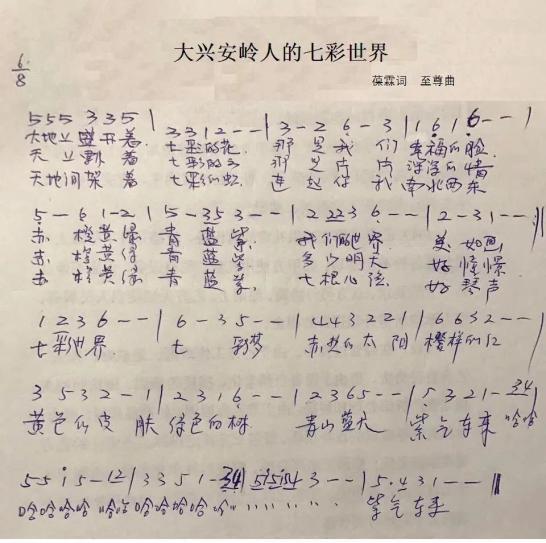 大兴安岭人的七彩世界
6/8
葆霖词 至尊曲
5 5 5 3 3 5 | 2 3 1 2 - - | 3 - 2 6 - 3 | 1 6 1 6 - - |
大地上盛开着 七彩的花 那是我们幸福的脸
天上飘着 七彩的云 那是片片深深的情
天地间架着 七彩的虹 连起你我南北西东
5 - 6 1 - 2 | 5 - 3 5 3 - - | 2 2 2 3 6 - - | 2 - 3 1 - - :||
赤橙黄绿青蓝紫 我们的世界 美如画
赤橙黄绿青蓝紫 多少明天 好憧憬
赤橙黄绿青蓝紫 七根心弦 好琴声
1 2 3 6 - - | 6 - 3 5 - - | 4 4 3 2 2 1 | 6 6 5 2 - - |
七彩世界 七彩梦 赤热的太阳 橙样的红
3 5 3 2 - 1 | 2 3 1 6 - - | 2 2 3 6 5 - - | 5 3 2 1 - 34 |
黄色的皮肤 绿色的树 青山蓝天 紫气东来 哈哈
5 5 i 5 - 12 | 3 3 5 1 - 34 | 5 i 5 i 54 3 - - | 5 · 4 3 1 - - ||
哈哈哈哈 哈哈哈哈哈哈 哈 紫气东来